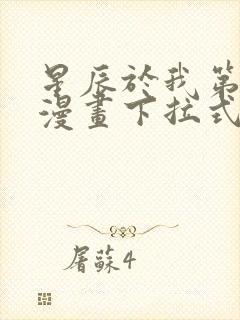 星辰於我第
漫畫下拉式
屠蘇4